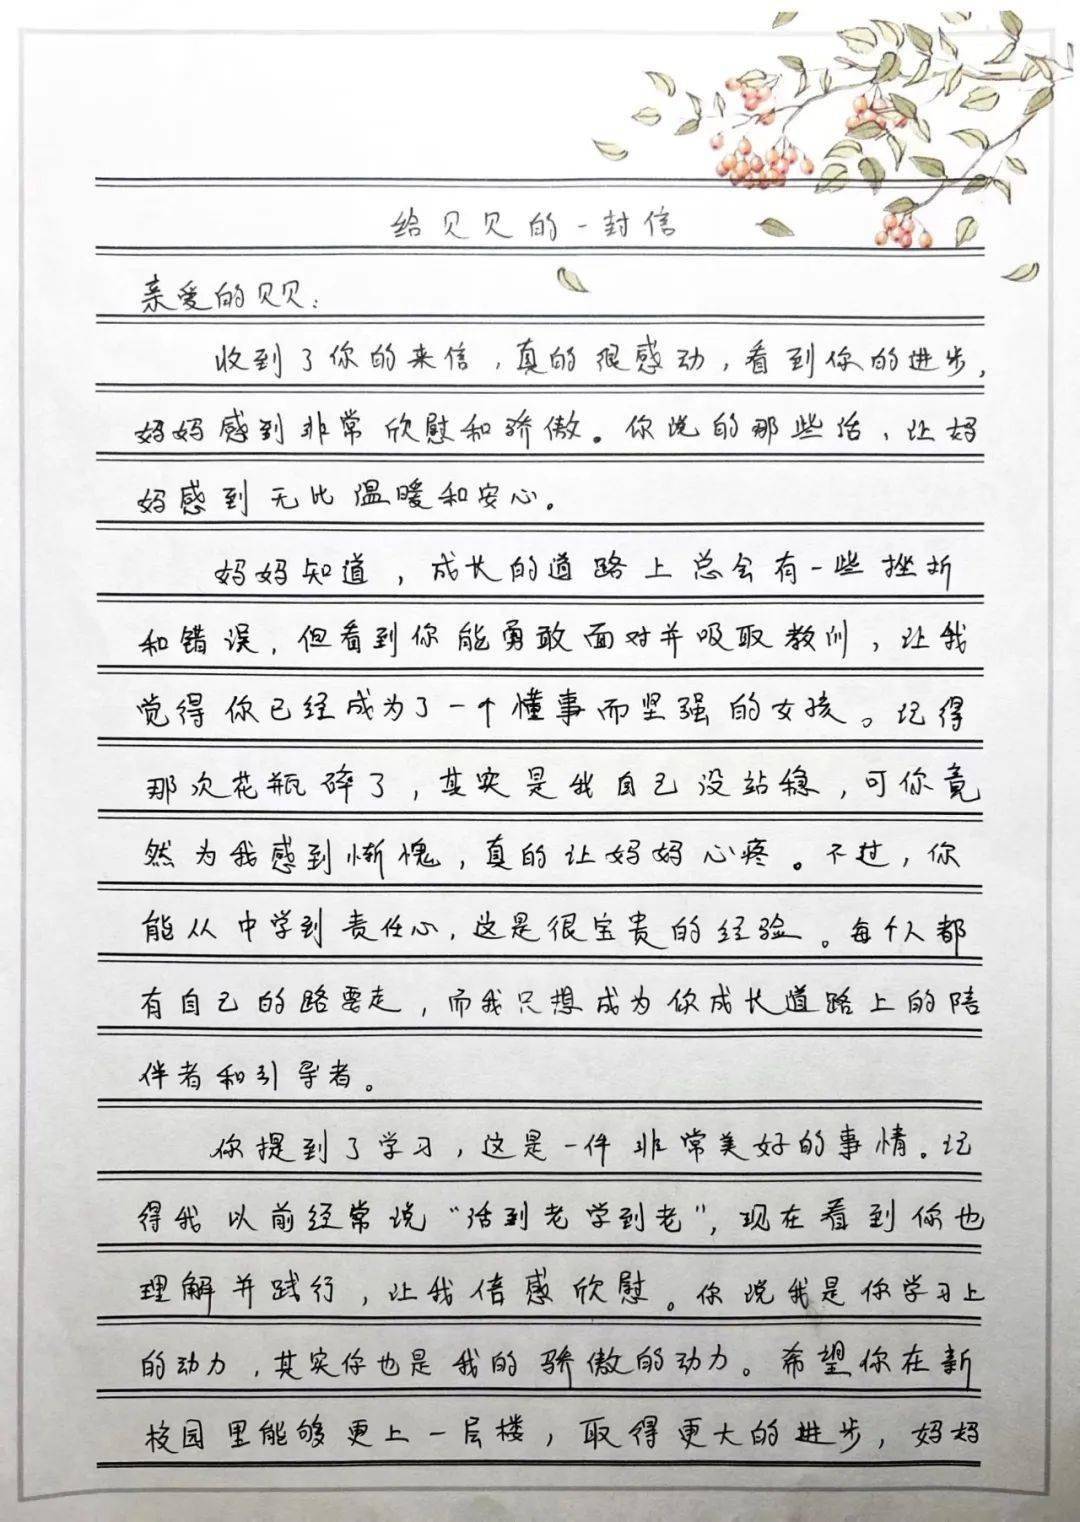 给贝贝的一封信
亲爱的贝贝：
收到了你的来信，真的很感动，看到你的进步，
妈妈感到非常欣慰和骄傲。你说的那些话，让妈
妈感到无比温暖和安心。
妈妈知道，成长的道路上总会有一些挫折
和错误，但看到你能勇敢面对并吸取教训，让我
觉得你已经成为了一个懂事而坚强的女孩。记得
那次花瓶碎了，其实是我自己没站稳，可你竟
然为我感到惭愧，真的让妈妈心疼。不过，你
能从中学到责任心，这是很宝贵的经验。每个人都
有自己的路要走，而我只想成为你成长道路上的陪
伴者和引导者。
你提到了学习，这是一件非常美好的事情。记
得我以前经常说“活到老学到老”，现在看到你也
理解并践行，让我倍感欣慰。你说我是你学习上
的动力，其实你也是我的骄傲的动力。希望你在新
校园里能够更上一层楼，取得更大的进步，妈妈